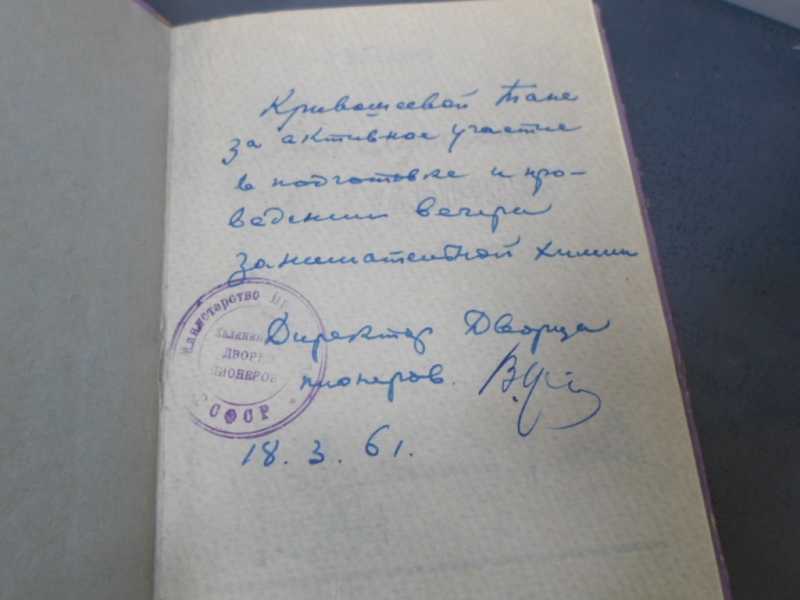 Кривошеевой Тане
за активное участие
в подготовке и про-
ведении вечера
занимательной химии
Директор Дворца
пионеров.
18. 3. 61.
Министерство
ДВОР
ПИОНЕРОВ
СФСР